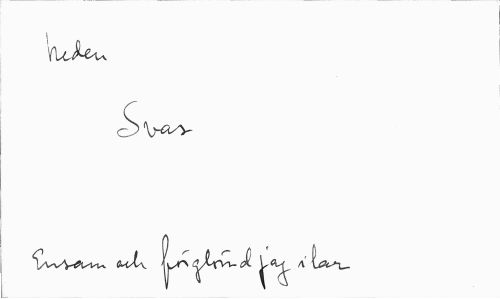 heden
Svar
Ensam och förglömd jag ilar